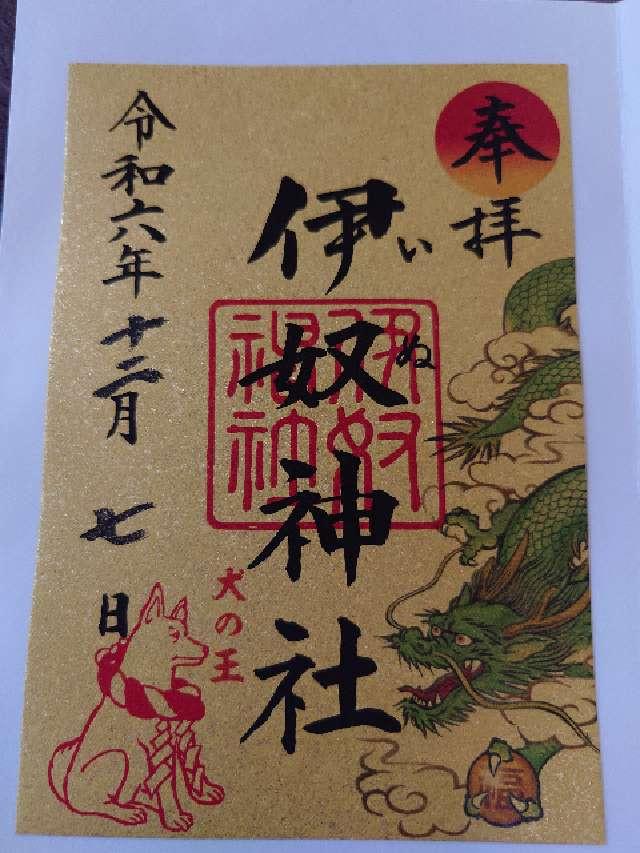 奉拝
いぬ
伊奴神社
伊奴神社
犬の王
令和六年十二月七日
福